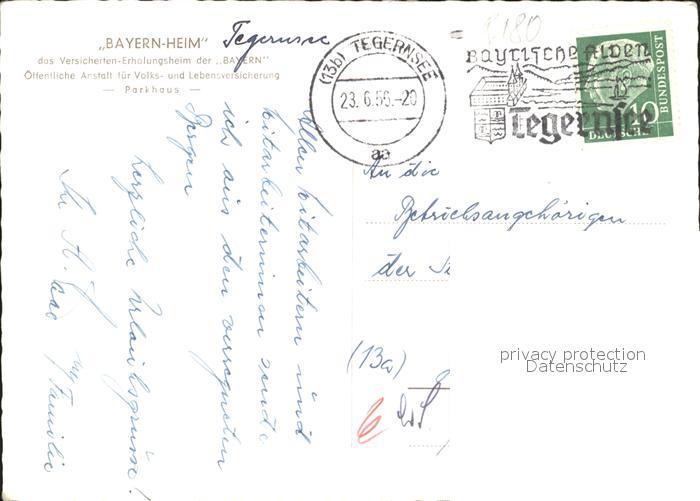 „BAYERN-HEIM" Tegernsee
das Versicherten-Erholungsheim der „BAYERN"
Öffentliche Anstalt für Volks- und Lebensversicherung
— Parkhaus —
Allen Mitarbeitern und
Mitarbeiterinnen sende
ich aus den verregneten
Bergen
herzliche Urlaubsgrüsse!
Ihr
u. Familie
(13b) TEGERNSEE
23.6.56.-20
aa
8180
Bayrische Alpen
Tegernsee
10
DEUTSCHE
BUNDESPOST
An die
Betriebsangehörigen
der
(13a)
privacy protection
Datenschutz